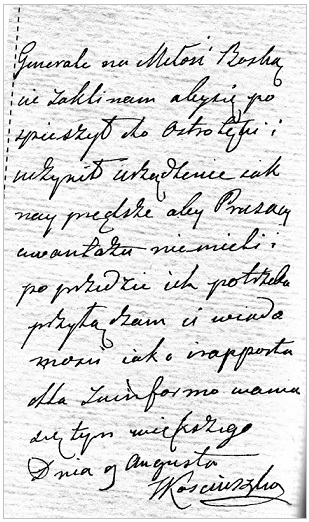 Generale na Miłość Boską
cie zaklinam abyś się po
spieszył do Ostrołęki i
uczynił urządzenie iak
nay prędsze aby Prusacy
awantażu nie mieli i
po przedzić ich potrzeba
przyłączam ci wiado
mości iako i rapporta
dla zainformowania
się tym większego
Dnia 9 Augusta
TKosciuszko